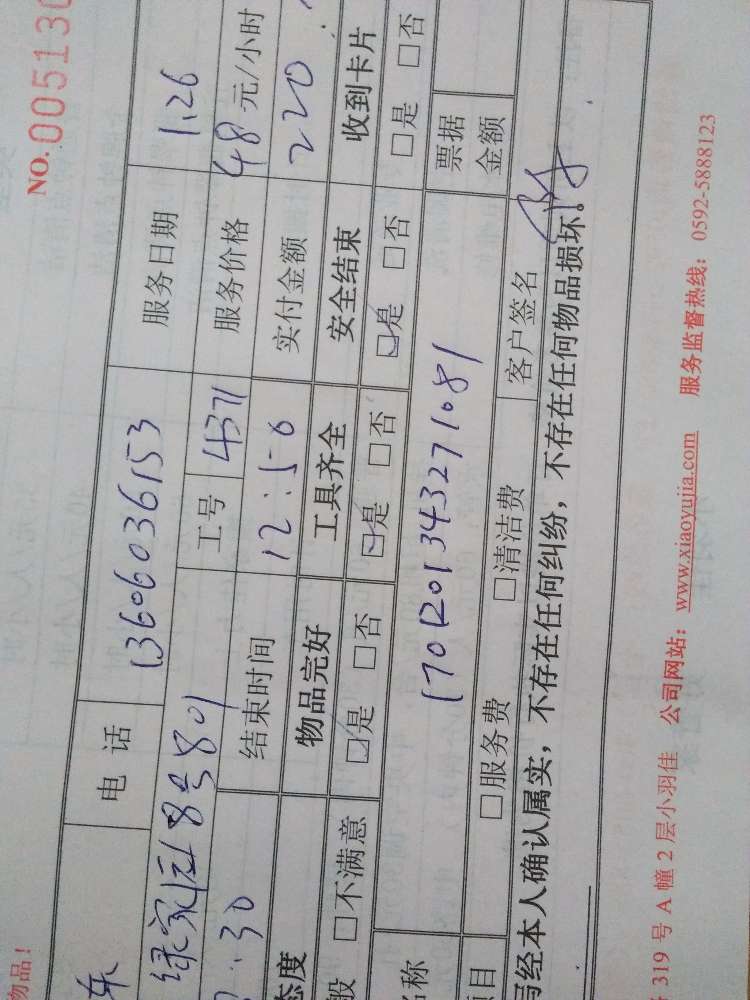 物品!
NO.005130
东 电话 13606036153 服务日期 1.26
绿家园8号801 工号 4371 服务价格 48元/小时
:30 结束时间 12:50 实付金额 220
态度 物品完好 工具齐全 安全结束 收到卡片
般 □不满意 □是 □否 □是 □否 □是 □否 □是 □否
名称 1701201343271081 票据金额
项目 □服务费 □清洁费 客户签名
写经本人确认属实，不存在任何纠纷，不存在任何物品损坏。
319号A幢2层小羽佳 公司网站：www.xiaoyujia.com 服务监督热线：0592-5888123